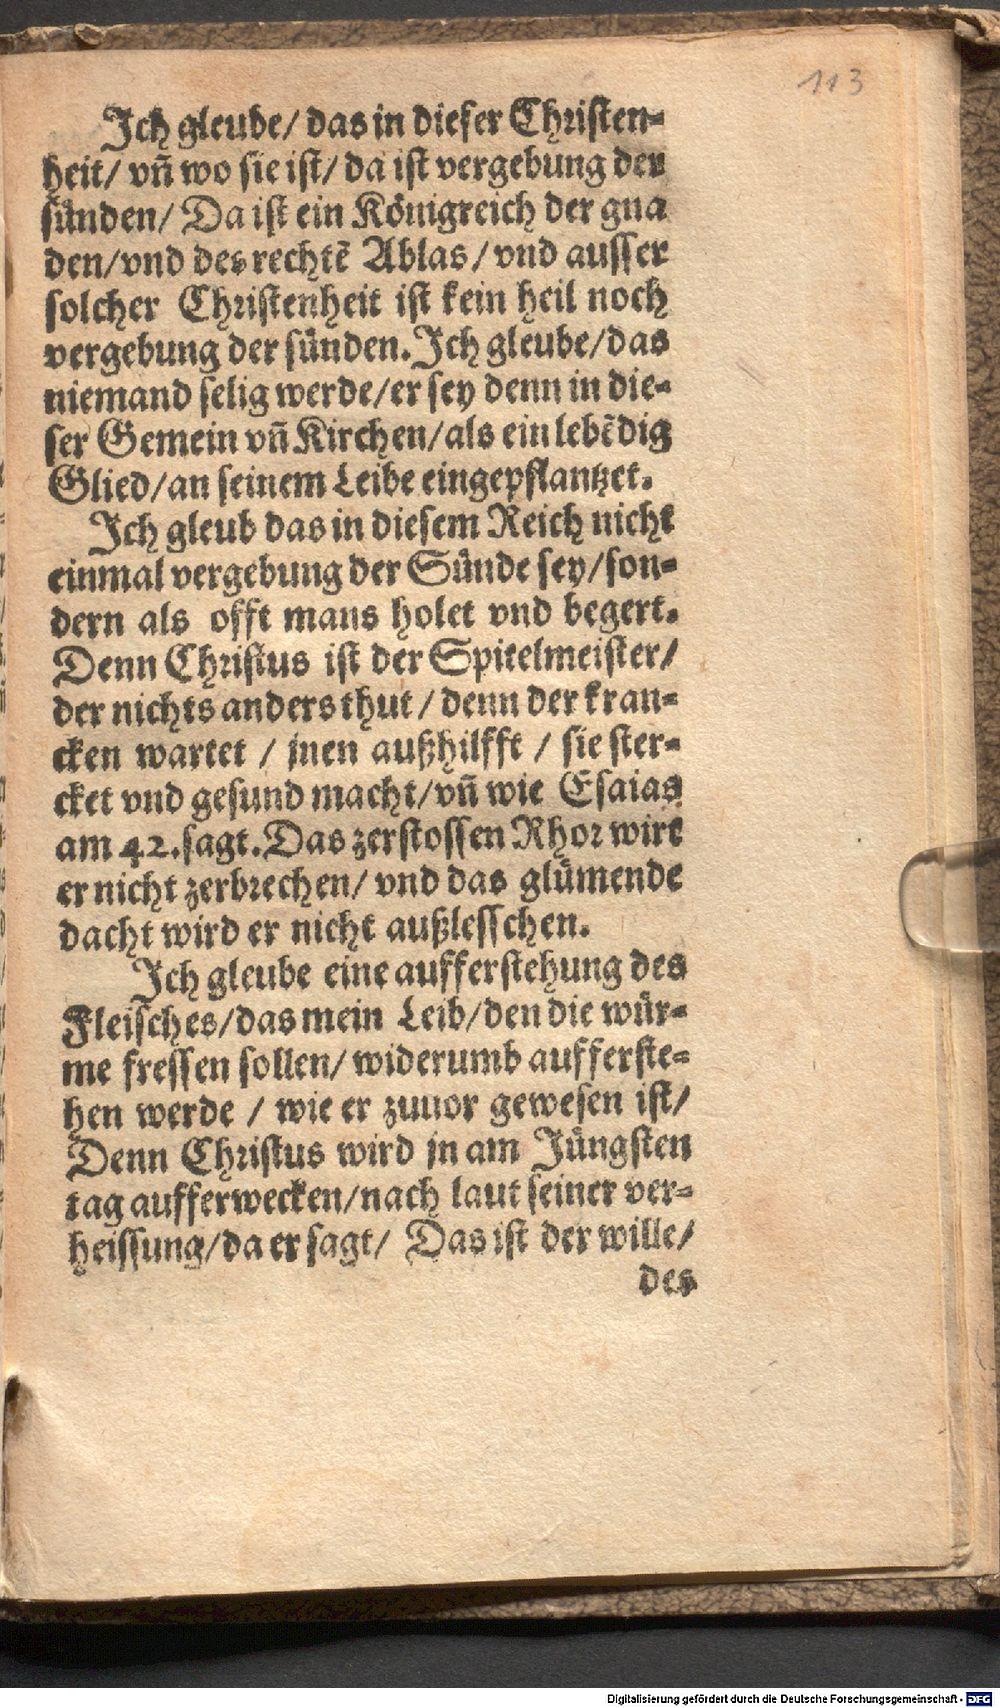 113
Ich gleube/ das in dieser Christen-
heit/ vñ wo sie ist/ da ist vergebung der
sünden/ Da ist ein Königreich der gna
den/vnd des rechtē Ablas/ vnd ausser
solcher Christenheit ist kein heil noch
vergebung der sünden. Ich gleube/das
niemand selig werde/er sey denn in die-
ser Gemein vñ Kirchen/als ein lebēdig
Glied/an seinem Leibe eingepflantzet.
Ich gleub das in diesem Reich nicht
einmal vergebung der Sünde sey/son-
dern als offt mans holet vnd begert.
Denn Christus ist der Spitelmeister/
der nichts anders thut/ denn der kran-
cken wartet / jnen außhilfft / sie ster-
cket vnd gesund macht/vñ wie Esaias
am 42. sagt. Das zerstossen Rhor wirt
er nicht zerbrechen/ vnd das glümende
dacht wird er nicht außlesschen.
Ich gleube eine aufferstehung des
Fleisches/das mein Leib/den die wür-
me fressen sollen/ widerumb aufferste-
hen werde / wie er zuuor gewesen ist/
Denn Christus wird jn am Jüngsten
tag aufferwecken/nach laut seiner ver-
heissung/da er sagt/ Das ist der wille/
des
Digitalisierung gefördert durch die Deutsche Forschungsgemeinschaft - DFG